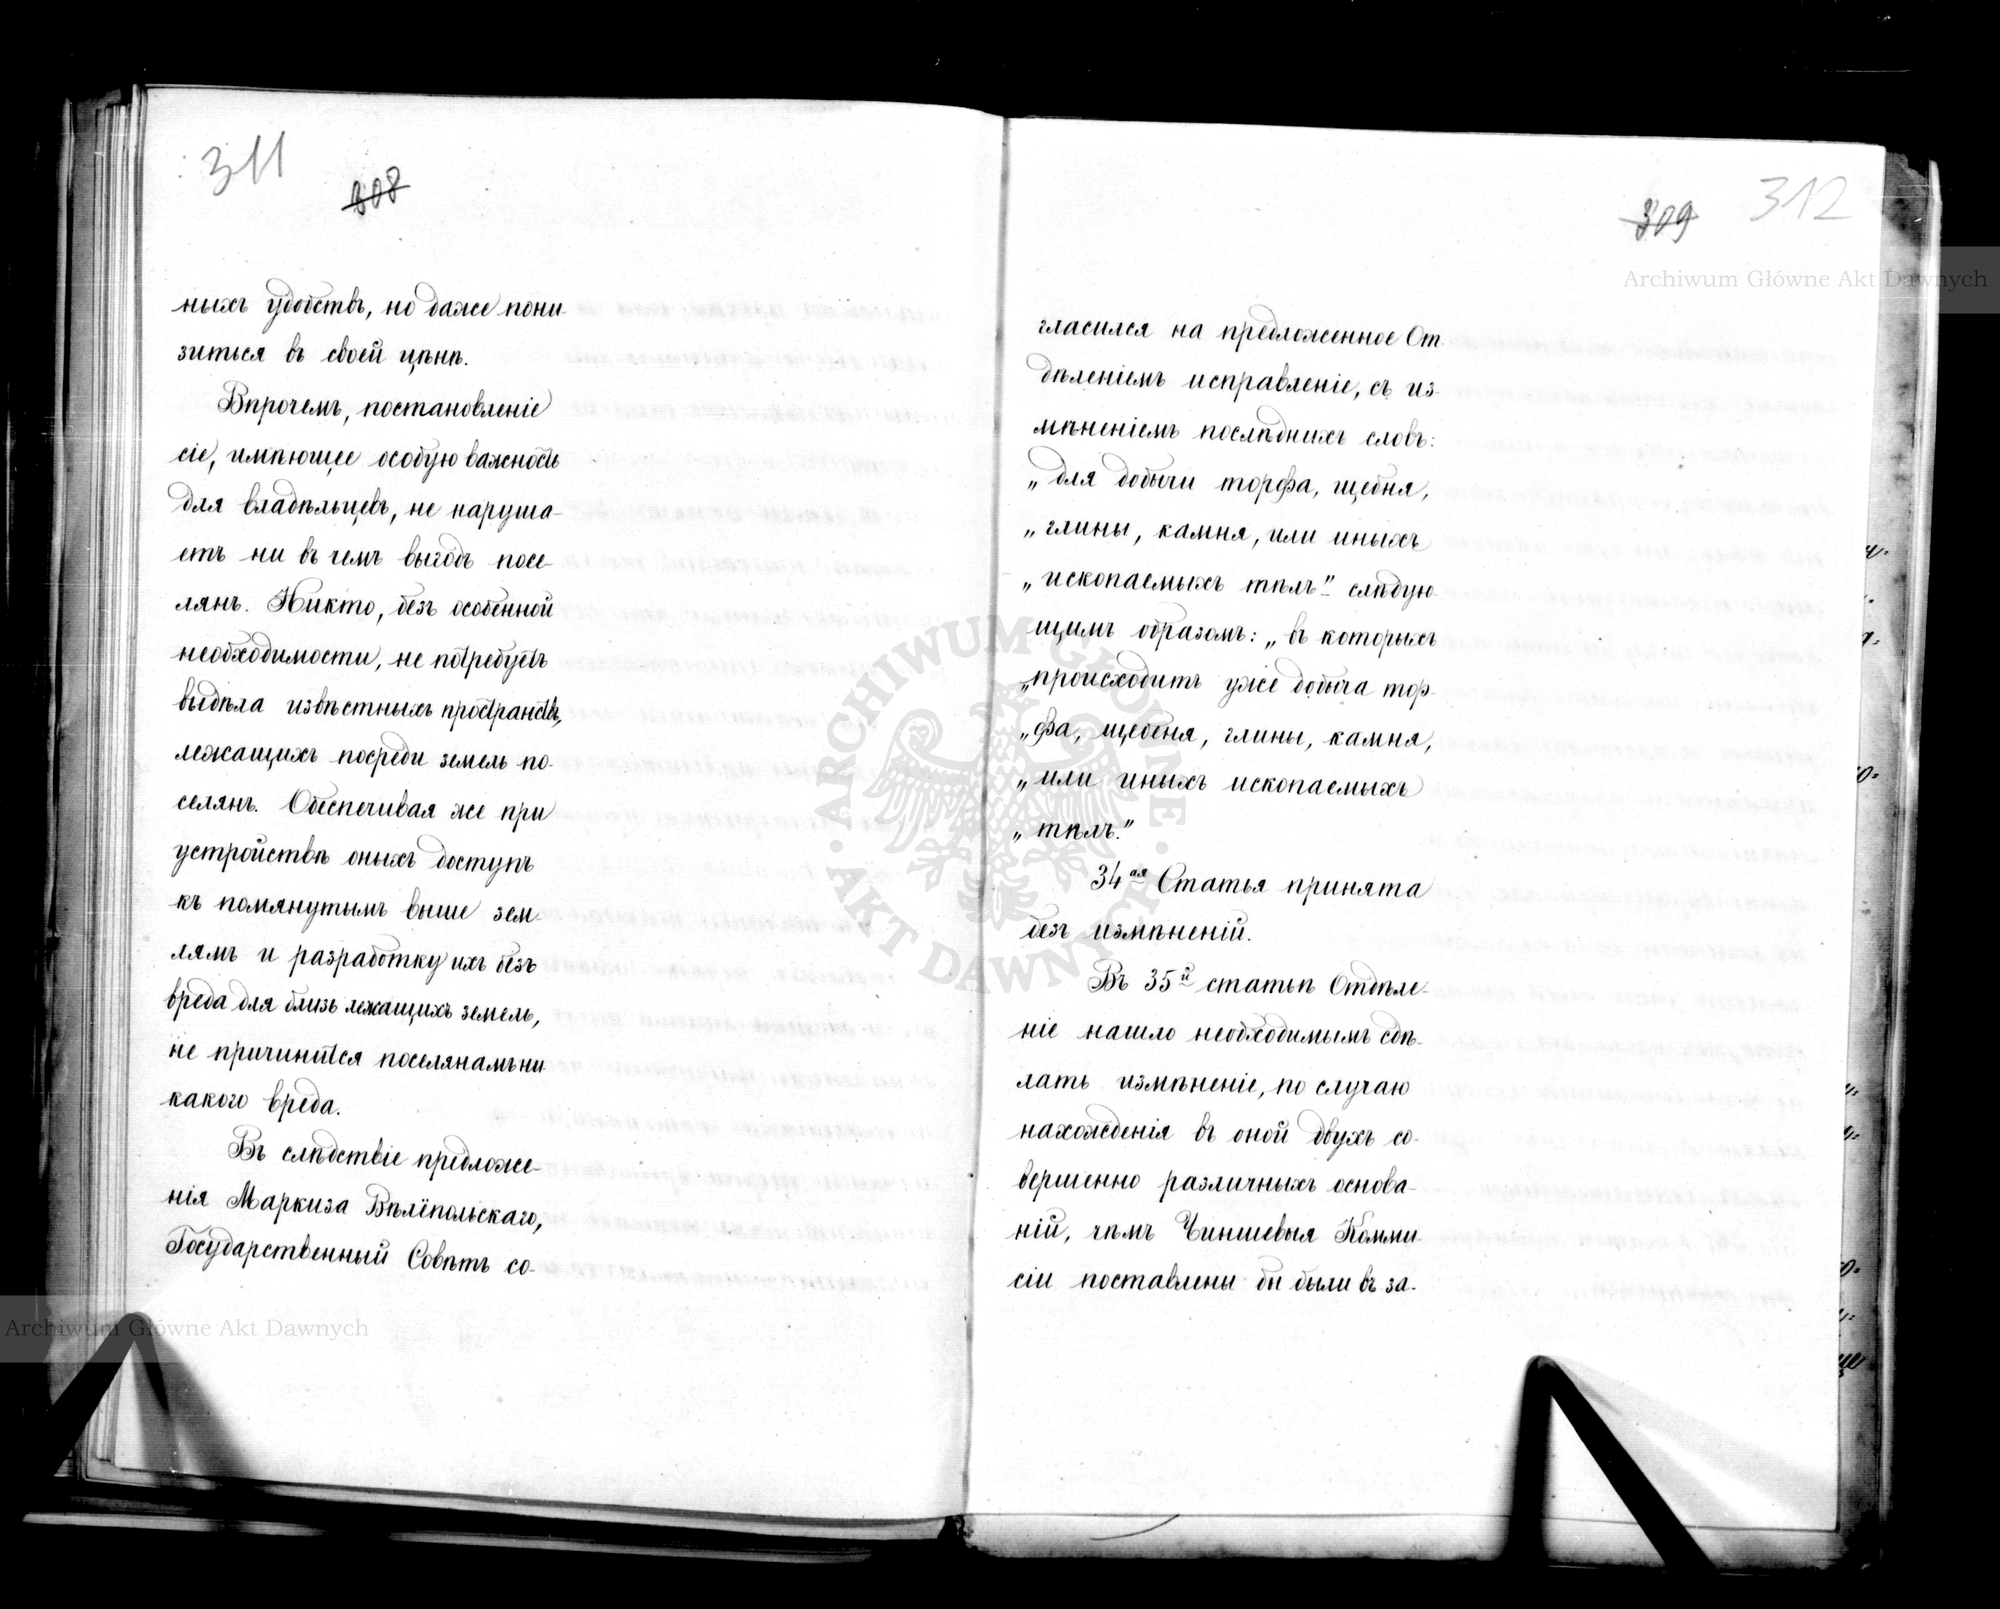 311
308
ныхъ удобствъ, но даже пони-
зиться въ своей цѣнѣ.
Впрочемъ, постановленіе
сіе, имѣющее особую важность
для владѣльцевъ, не наруша-
етъ ни въ чемъ выгодъ посе-
лянъ. Никто, безъ особенной
необходимости, не потребуетъ
выдѣла извѣстныхъ пространствъ,
лежащихъ посреди земель по-
селянъ. Обеспечивая же при
устройствѣ оныхъ доступъ
къ помянутымъ выше зем-
лямъ и разработку ихъ безъ
вреда для близь лежащихъ земель,
не причинится поселянамъ ни
какого вреда.
Въ слѣдствіе предложе-
нія Маркиза Вѣлёпольскаго,
Государственный Совѣтъ со-
309
312
гласился на предложенное От-
дѣленіемъ исправленіе, съ из-
мѣненіемъ послѣднихъ словъ:
„для добычи торфа, щебня,
„глины, камня, или иныхъ
„ископаемыхъ тѣлъ" слѣдую-
щимъ образомъ: „въ которыхъ
„происходитъ уже добыча тор-
„фа, щебеня, глины, камня,
„или иныхъ ископаемыхъ
„тѣлъ."
34ая Статья принята
безъ измѣненій.
Въ 35й статьѣ Отдѣле-
ніе нашло необходимымъ сдѣ-
лать измѣненіе, по случаю
нахожденія въ оной двухъ со-
вершенно различныхъ основа-
ній, чѣмъ Чиншевыя Комми-
сіи поставлены бы были въ за-
Archiwum Główne Akt Dawnych
Archiwum Główne Akt Dawnych
ARCHIWUM GŁÓWNE
AKT DAWNYCH